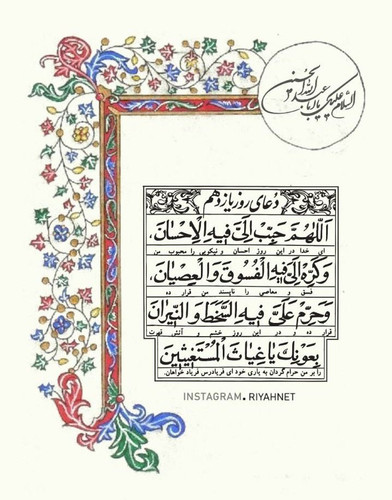 السلام علیک یا اباعبدالله الحسین
دعای روز یازدهم
اَللّهُمَّ حَبِّبْ اِلَیَّ فیهِ الْاِحْسانَ،
ای خدا در این روز احسان و نیکویی را محبوب من
وَ کَرِّهْ اِلَیَّ فیهِ الْفُسُوقَ وَ الْعِصْیانَ،
فسق و معاصی را ناپسند من قرار ده
وَ حَرِّمْ عَلَیَّ فیهِ السَّخَطَ وَ النّیرانَ
قرار ده و در این روز خشم و آتش قهرت
بِعَوْنِکَ یا غِیاثَ الْمُسْتَغیثینَ
را بر من حرام گردان به یاری خود ای فریادرس فریاد خواهان.
INSTAGRAM. RIYAHNET